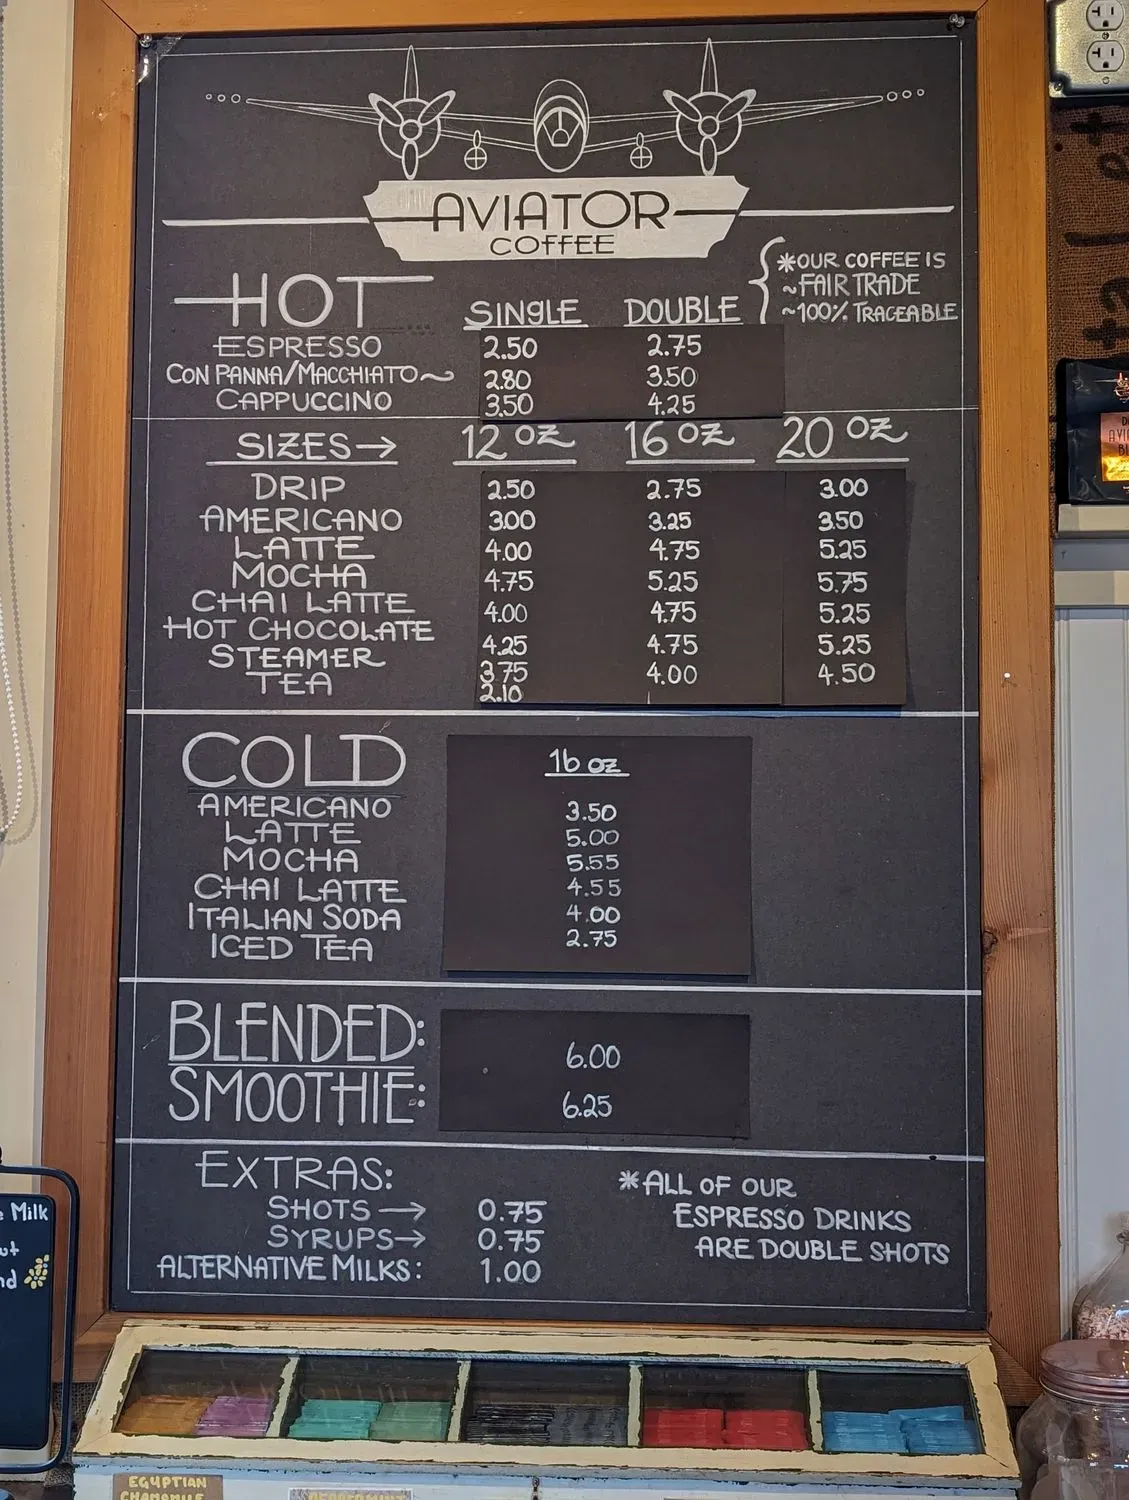 AVIATOR
COFFEE
*OUR COFFEE IS
~FAIR TRADE
~100% TRACEABLE
HOT SINGLE DOUBLE
ESPRESSO 2.50 2.75
CON PANNA/MACCHIATO~ 2.80 3.50
CAPPUCCINO 3.50 4.25
SIZES→ 12 OZ 16 OZ 20 OZ
DRIP 2.50 2.75 3.00
AMERICANO 3.00 3.25 3.50
LATTE 4.00 4.75 5.25
MOCHA 4.75 5.25 5.75
CHAI LATTE 4.00 4.75 5.25
HOT CHOCOLATE 4.25 4.75 5.25
STEAMER 3.75 4.00 4.50
TEA 2.10
COLD 16 oz
AMERICANO 3.50
LATTE 5.00
MOCHA 5.55
CHAI LATTE 4.55
ITALIAN SODA 4.00
ICED TEA 2.75
BLENDED: 6.00
SMOOTHIE: 6.25
EXTRAS:
SHOTS → 0.75
SYRUPS→ 0.75
ALTERNATIVE MILKS: 1.00
*ALL OF OUR
ESPRESSO DRINKS
ARE DOUBLE SHOTS
Milk
EGYPTIAN
CHAMOMILE